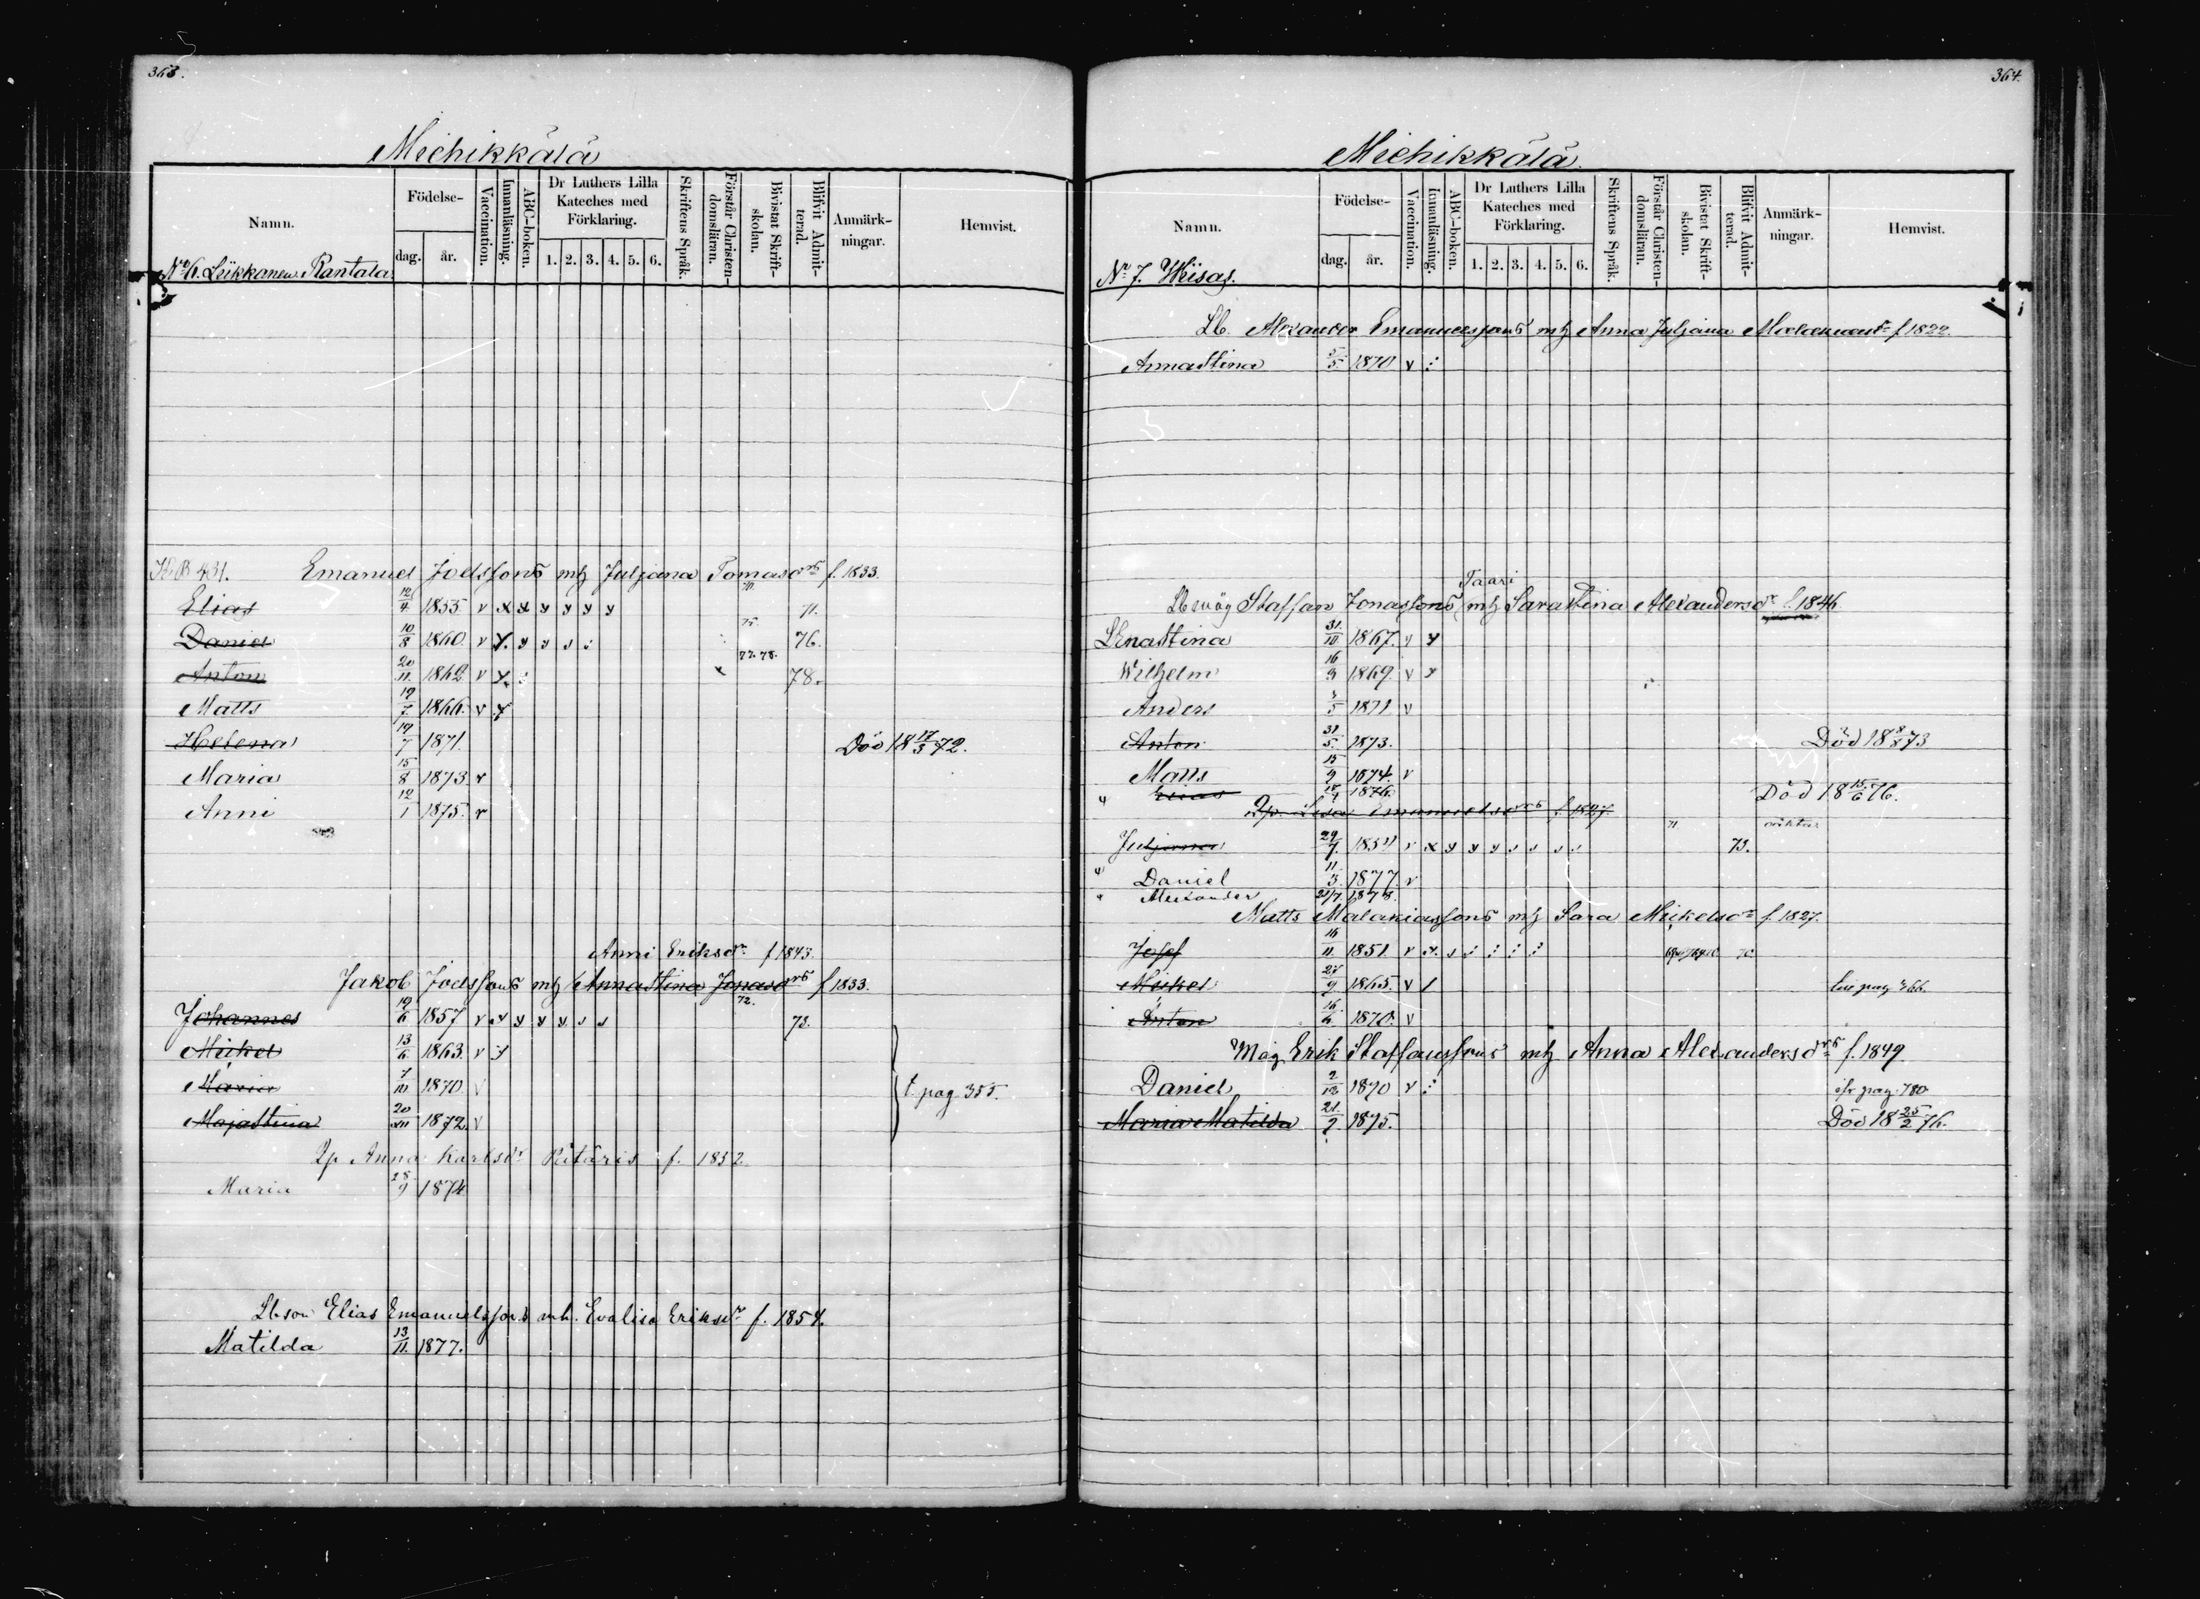 363.
Michikkälä
Namn. Födelse- dag. år. Vaccination. Innanläsning. ABC-boken. Dr Luthers Lilla Kateches med Förklaring. 1. 2. 3. 4. 5. 6. Skriftens Språk. Förstår Christen-domsläran. Bivistat Skrift-skolan. Blifvit Admit-terad. Anmärk-ningar. Hemvist.
No 6. Leikkanen Rantala
K.B 431. Emanuel Joelssons mh Juljana Tomasdr f. 1833.
Elias 12/4 1855 v x x y y y y 71.
Daniel 10/8 1860. v 75. 76.
Anton 20/11. 1862 v 77. 78. 78.
Matts 19/7. 1866. v
Helena 19/7 1871. Död 18 17/3 72.
Maria 15/8 1873. v
Anni 12/1 1875. v
Anni Eriksdr f 1843.
Jakob Joelssons mh Annastina Jonasdrs f 1833.
Johannes 19/6 1857 v 72. 73.
Mickel 13/6 1863. v
Maria 1870. v
Majastina 20 1872. v
t. pag. 355.
Ip Anna Karlsdr Pitäris f. 1852
Maria 28/9 1874
Lb son Elias Emanuelssons mh. Evalisa Eriksdr f. 1854.
Matilda 13/11. 1877.
364.
Michikkälä.
Namn. Födelse- dag. år. Vaccination. Innanläsning. ABC-boken. Dr Luthers Lilla Kateches med Förklaring. 1. 2. 3. 4. 5. 6. Skriftens Språk. Förstår Christen-domsläran. Bivistat Skrift-skolan. Blifvit Admit-terad. Anmärk-ningar. Hemvist.
No 7. Weisas.
Lb. Alexander Emanuelssons mh Anna Juljana f 1822.
Annastina 5/5 1870 v
Taari
Lb måg Staffan Jonassons mh Sarastina Alexandersdr f. 1846
Lenastina 31/10 1867. v
Wilhelm 16 1869. v
Anders 1871 v
Anton 31/5. 1873. Död 18 8/8 73
Matts 15/9 1874. v
Elias 1876. Död 18 15/6 76.
Ip. Lisa Emanuelsdrs f. 1827.
Juljana 29/7. 185 v x y y y 71 73.
Daniel 11/3. 1877. v
Alexander 21/7. 1878.
Matts Malakiassons mh Sara Mickelsdr f. 1827.
Josef 16/11 1851. v 70.
Mickel 27/9 1865. v / pag 366.
Anton 16/6. 1870. v
Måg Erik Staffanssons mh Anna Alexandersdrs f. 1849
Daniel 2/12 1870 v pag. 780
Maria Matilda 21./9 1875. Död 18 25/2 76.